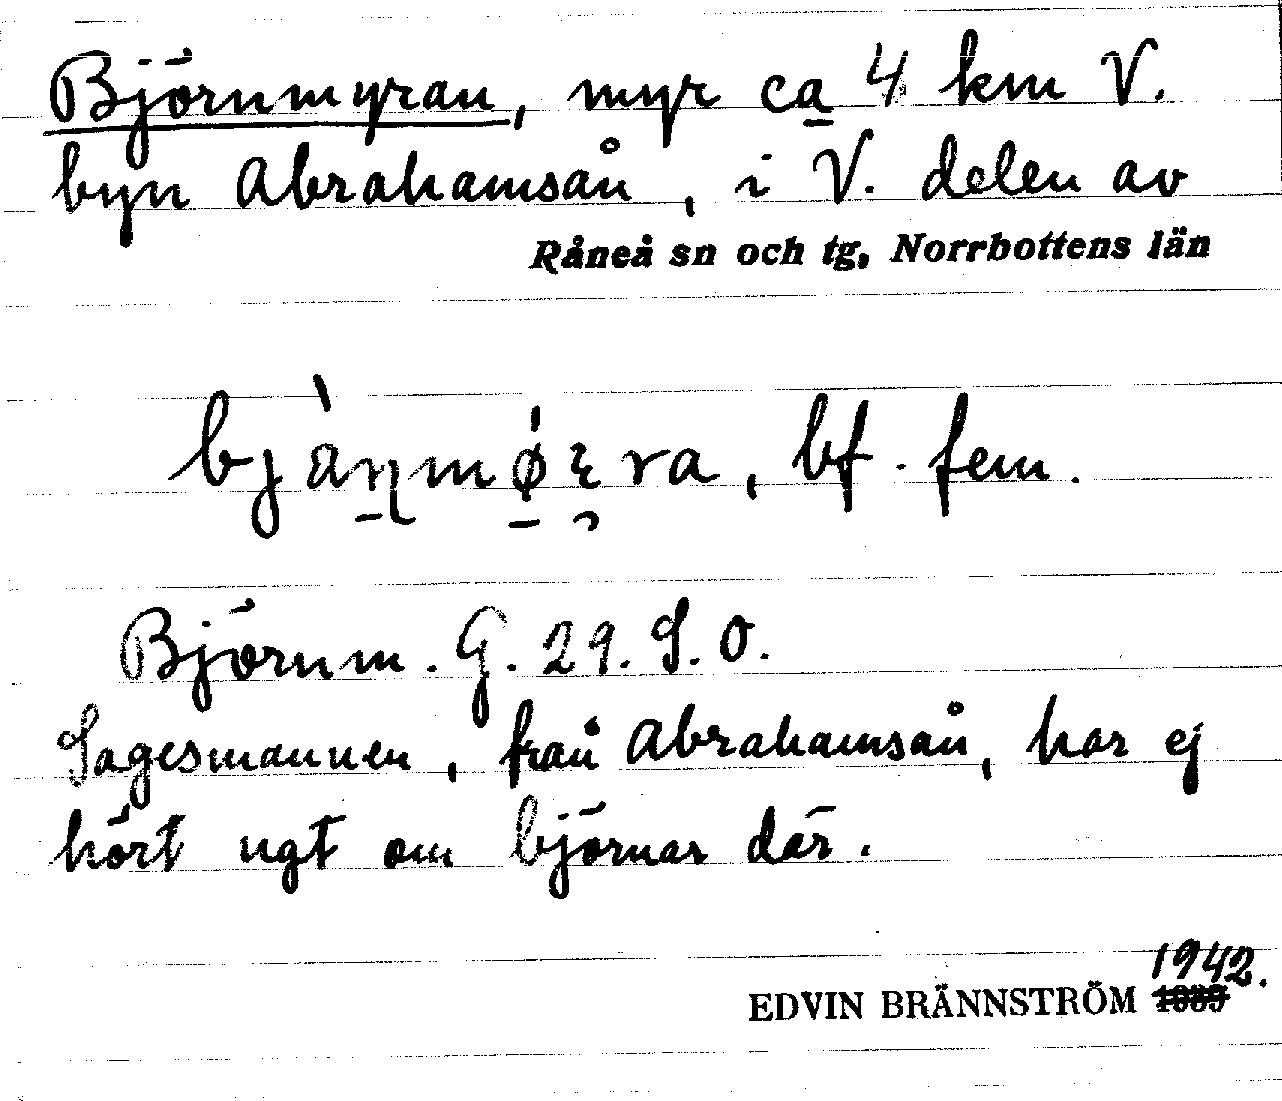 Björnmyran, myr ca 4 km V.
byn Abrahamsån, i V. delen av
Råneå sn och tg, Norrbottens län
bf. fem.
Björnm. G. 29. S. O.
Sagesmannen, från Abrahamsån, har ej
hört ngt om björnar där.
1942.
EDVIN BRÄNNSTRÖM